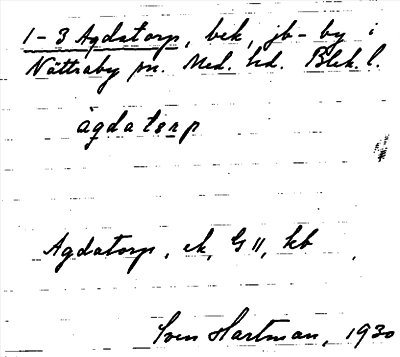 1-3 Agdatorp, bek, jb- by i
Nättraby sn. Med. hd. Blek. l.
ágdatorp
Agdatorp, ek, G 11, kb
Sven Hartman, 1930